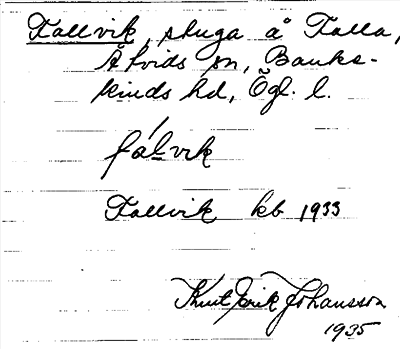 Fallvik, stuga å Falla,
Åtvids sn, Banke-
kinds hd, Ögl. l.
fálvik
Fallvik kb 1933
Knut Erik Johansson
1935